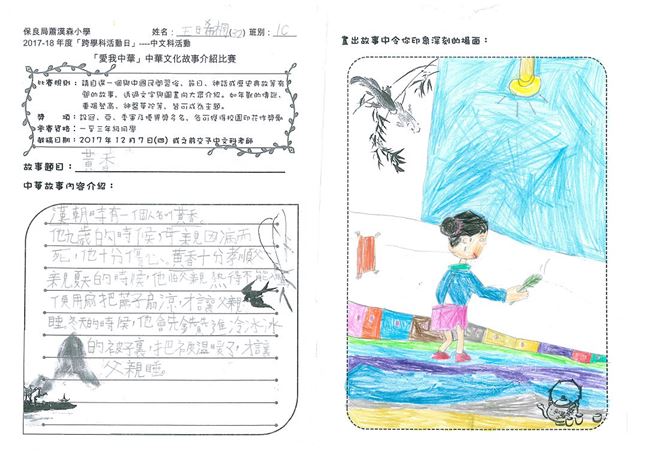 保良局蕭漢森小學
姓名： 王日希桐(32) 班別：1C
2017-18 年度「跨學科活動日」----中文科活動
「愛我中華」中華文化故事介紹比賽
比賽規則：請自選一個與中國民學習俗、節日、神話或歷史典故等有
關的故事，透過文字與圖畫向大眾介紹。如年獸的傳說、
重陽登高、神醫華佗等，皆可成為主題。
獎　　項：設冠、亞、季軍及優異獎多名，各可獲得校園印花作獎勵
參賽資格：一至三年級同學
截稿日期：2017 年 12 月 7 日(四) 或之前交予中文科老師
故事題目：黃香
中華故事內容介紹：
漢朝時有一個人名叫黃香。
他九歲的時候，母親因病而
死，他十分傷心。黃香十分孝順父
親夏天的時候，他怕父親熱得不能入睡
使用扇把蓆子扇涼，才讓父親
睡。冬天的時候，他會先鑽進冷冰冰
的被子裏，把被溫暖了，才讓
父親睡。
畫出故事中令你印象深刻的場面：